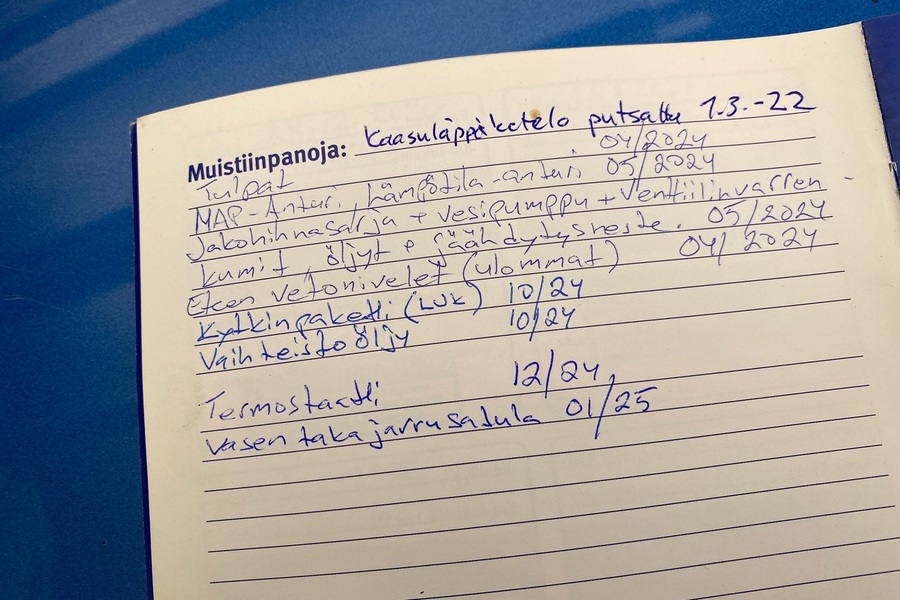 Muistiinpanoja: Kaasuläppäkotelo putsattu 1.3.-22
Tulpat 04/2024
MAP-Anturi, Lämpötila-anturi 05/2024
Jakohihnasarja + vesipumppu + Venttiilinvarren -
kumit, öljyt + jäähdytysneste. 05/2024
Eteen vetonivelet (ulommat) 04/2024
Kytkinpaketti (LUK) 10/24
Vaihteistoöljy 10/24
Termostaatti 12/24
Vasen takajarrusatula 01/25